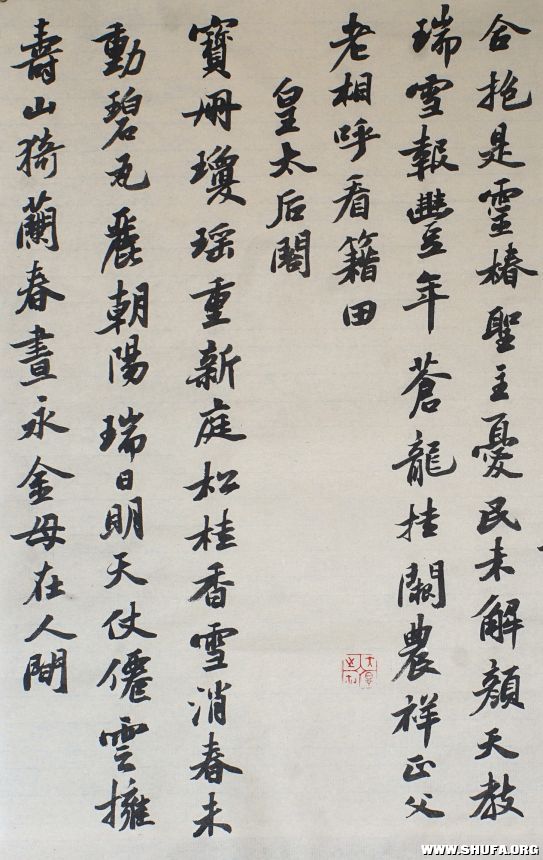 合抱是靈椿聖主憂民未解顏天教
瑞雪報豐年蒼龍挂闕農祥正父
老相呼看籍田
皇太后閣
寶冊瓊瑤重新庭松桂香雪消春未
動碧瓦麗朝陽瑞日明天仗僊雲擁
壽山猗蘭春晝永金母在人間
WWW.SHUFA.ORG